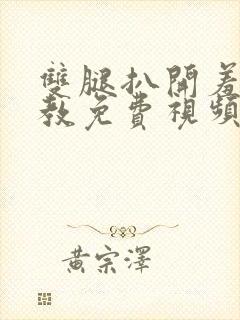 雙腿扒開羞
教免費視頻
黃宗澤